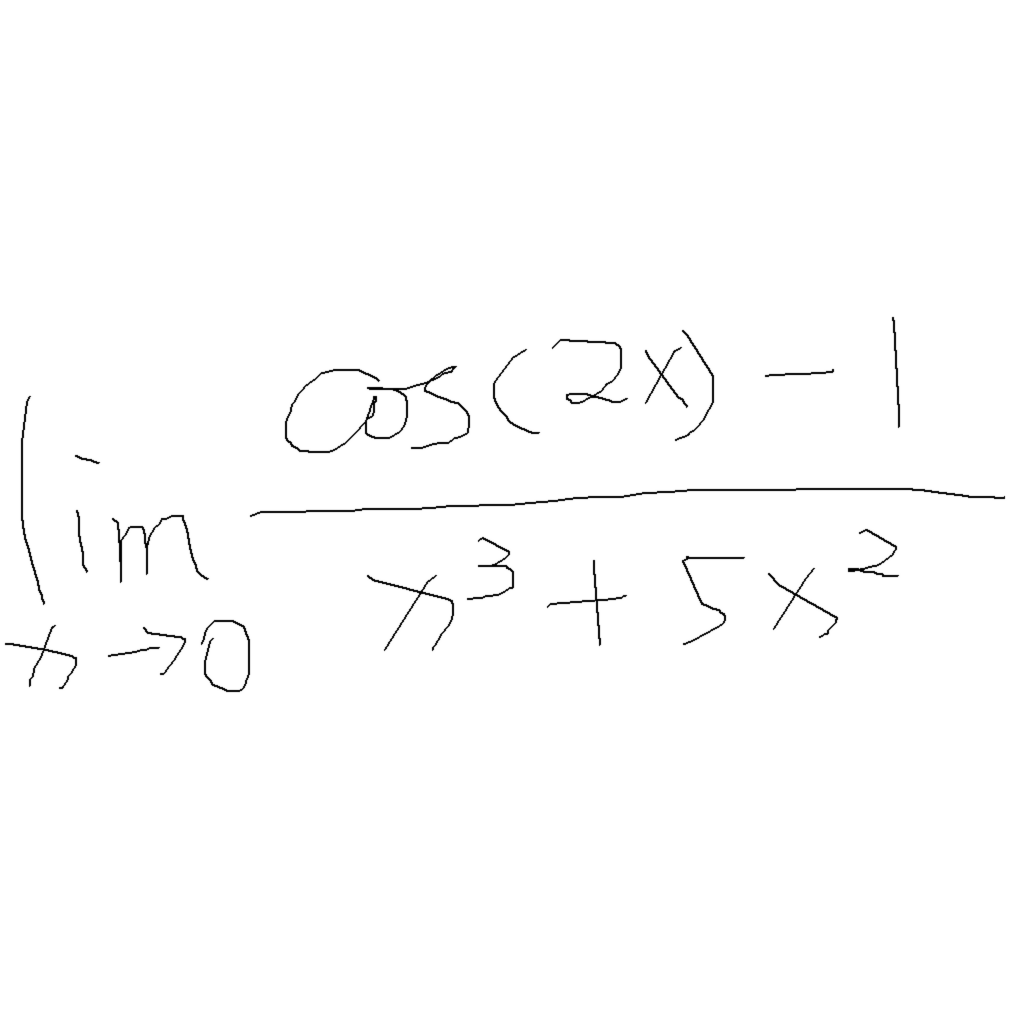 lim x→0 (cos(2x) - 1) / (x³ + 5x²)